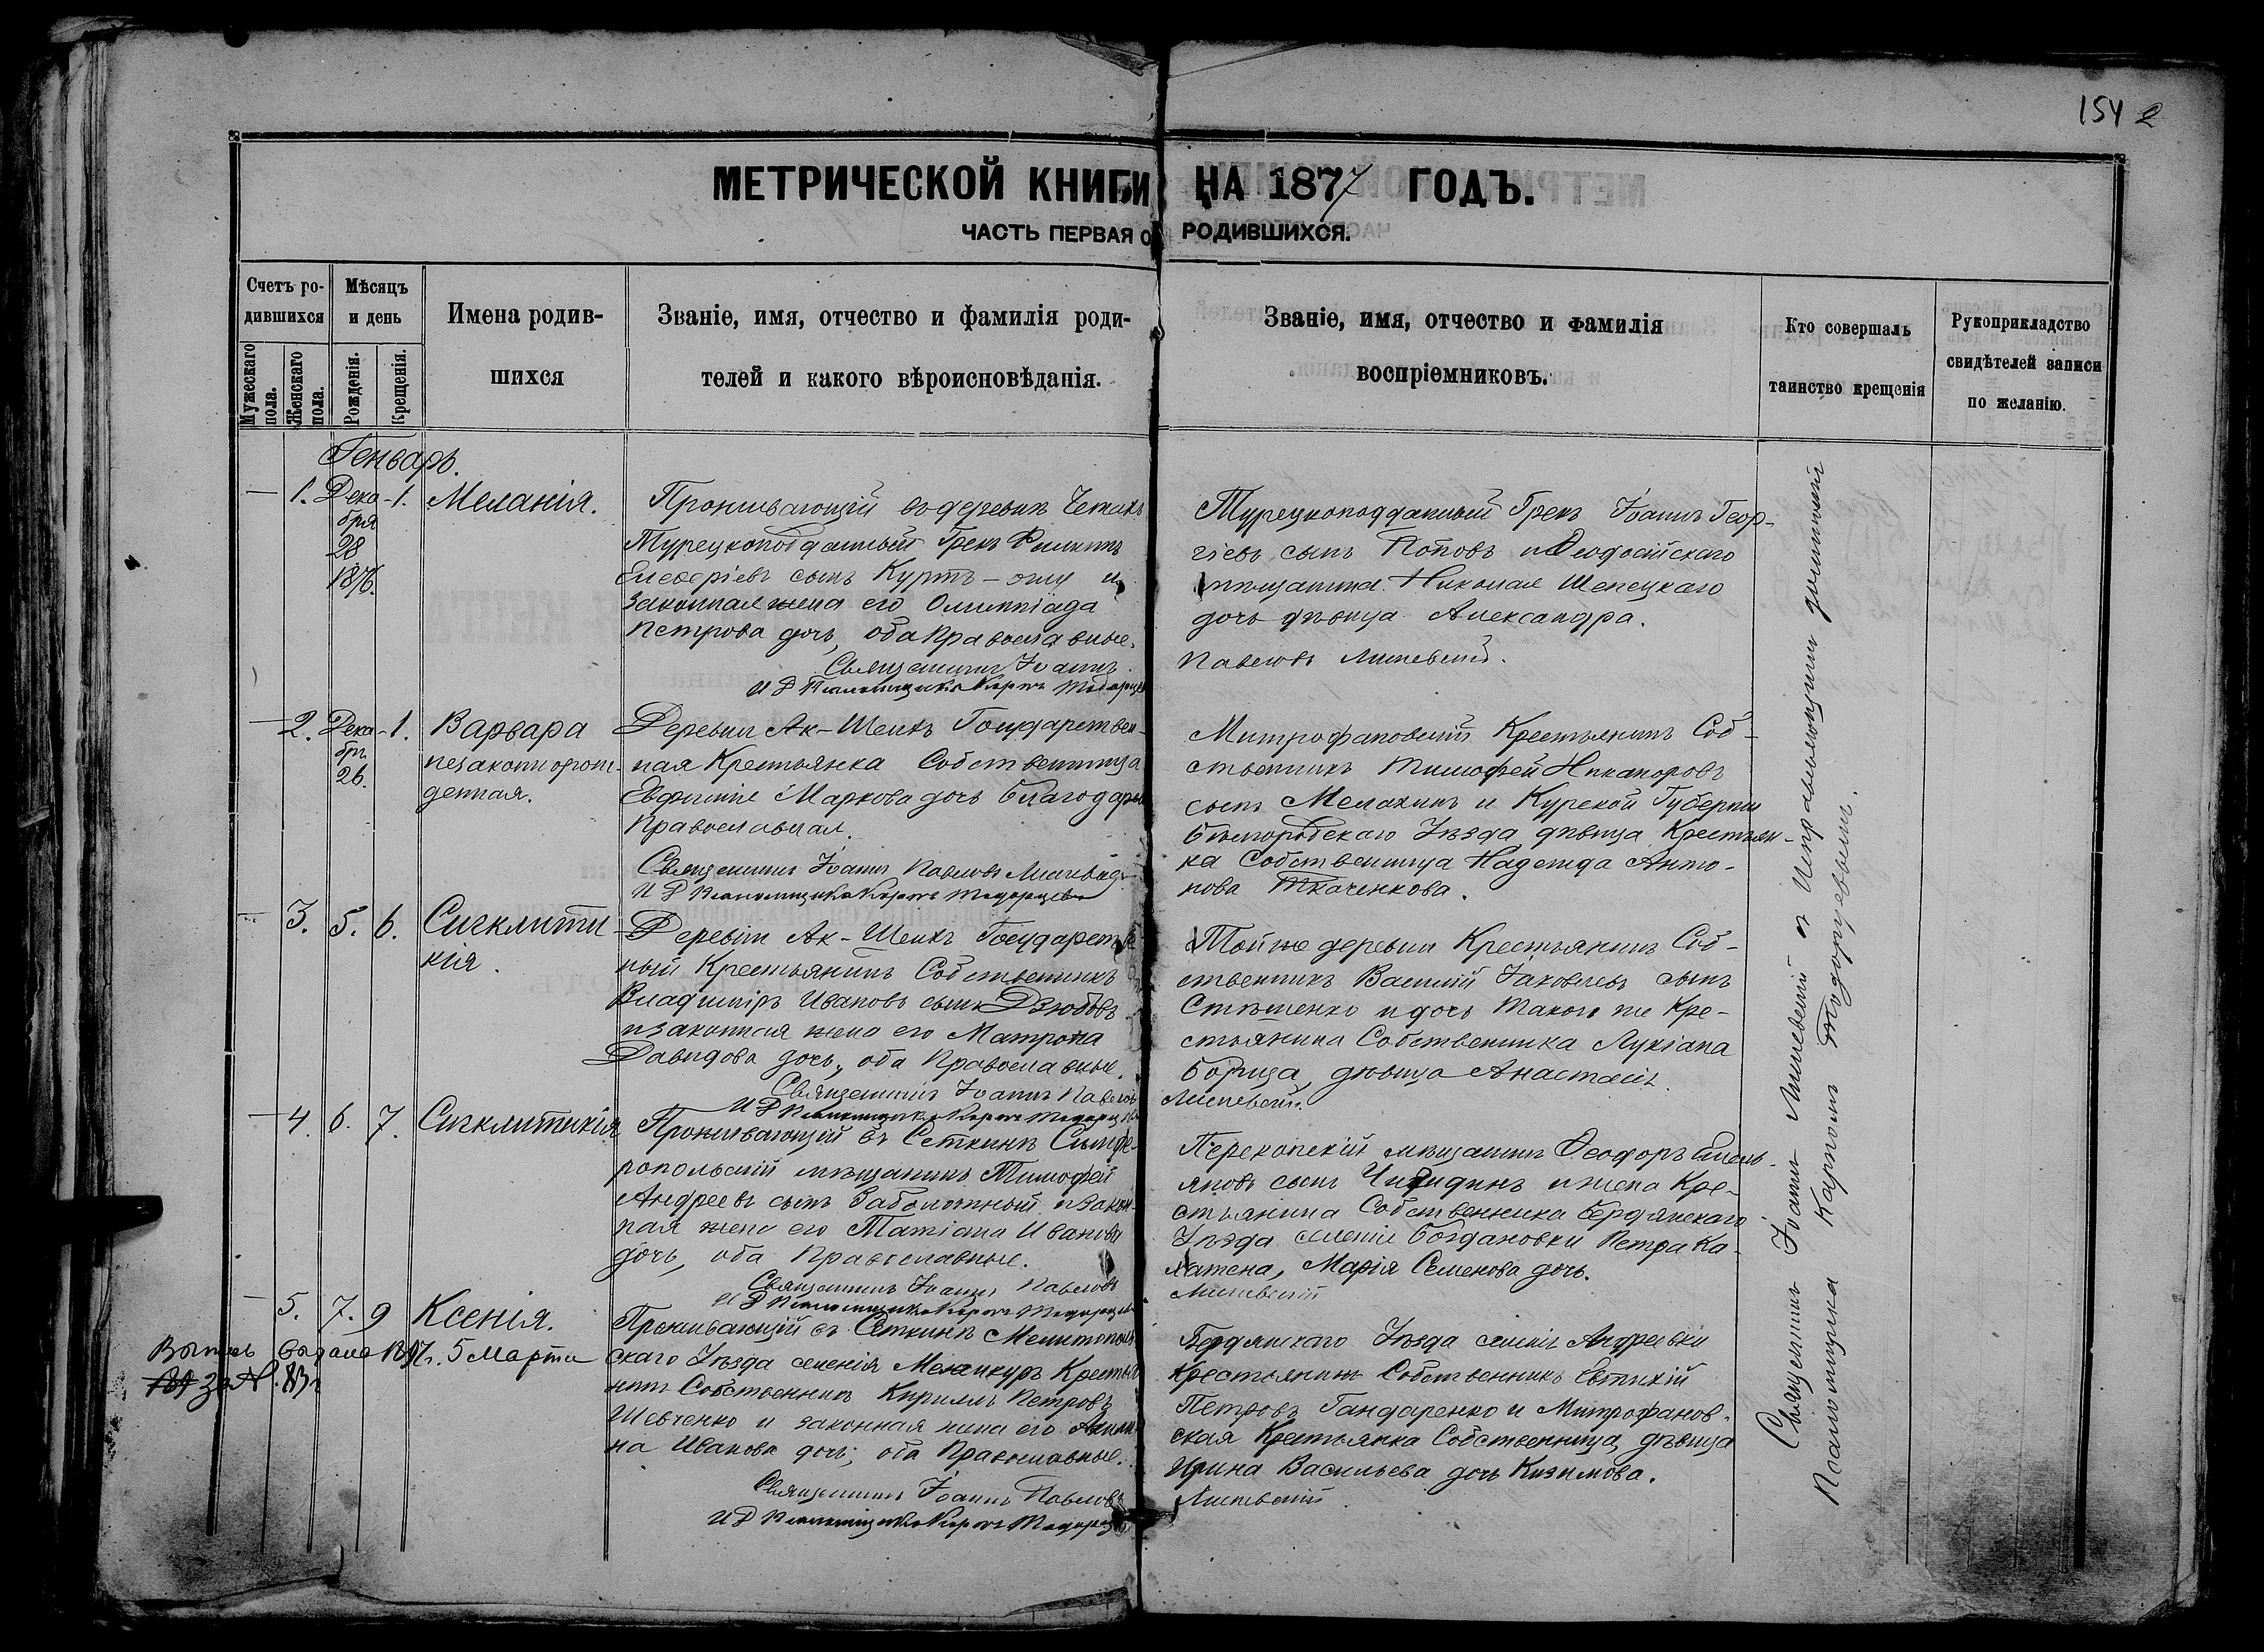 154
МЕТРИЧЕСКОЙ КНИГИ НА 1877 ГОДЪ.
ЧАСТЬ ПЕРВАЯ О РОДИВШИХСЯ.
Счетъ ро-
дившихся
Мужескаго пола.
Женскаго пола.
Мѣсяцъ
и день
Рожденія.
Крещенія.
Имена родив-
шихся
Званіе, имя, отчество и фамилія роди-
телей и какого вѣроисповѣданія.
Званіе, имя, отчество и фамилія
воспріемниковъ.
Кто совершалъ
таинство крещенія
Рукоприкладство
свидѣтелей записи
по желанію.
Генварь.
1. Дека- 1. Меланія.
бря
28
1876.
Проживающій въ деревнѣ
Турецкоподданный Грекъ Филиппъ
сынъ Куртъ-оглу и
законная жена его Олимпіада
Петрова дочь, оба православные.
Священникъ Іоаннъ
И Д Псаломщика Карпъ
Турецкоподданный Грекъ Іоаннъ Геор-
гіевъ сынъ Поповъ и Ѳеодосійскаго
мѣщанина Николая Шепецкаго
дочь дѣвица Александра.
Павловъ
2. Дека- 1. Варвара
бря
26.
незаконнорож-
денная.
Деревни Ак-Шеихъ Государствен-
ная Крестьянка Собственница
Евфимія Маркова дочь
Православная.
Священникъ Іоаннъ Павловъ
И Д Псаломщика Карпъ
Митрофановскій Крестьянинъ Соб-
ственникъ Тимофей Никаноровъ
сынъ Мелахинъ и Курской Губерніи
Бѣлгородскаго Уѣзда дѣвица Крестьян-
ка Собственница Надежда Анто-
нова Ткаченкова.
3. 5. 6. Сигклити
кія.
Деревни Ак-Шеихъ Государствен
ный Крестьянинъ Собственникъ
Владиміръ Ивановъ сынъ Дзюбовъ
и законная жена его Матрона
Давидова дочь, оба Православные.
Священникъ Іоаннъ Павловъ
И Д Псаломщика Карпъ
Той же деревни Крестьянинъ Соб-
ственникъ Василій Іаковлевъ сынъ
Стешенко и дочь такого же Кре-
стьянина Собственника Лукіана
дѣвица Анастасія.
4. 6. 7. Сигклитикія
Проживающій въ Сеткинѣ Симфе-
ропольскій мѣщанинъ Тимофей
Андреевъ сынъ Заболотный и закон-
ная жена его Татіана Иванова
дочь, оба Православные.
Священникъ Іоаннъ Павловъ
И Д Псаломщика Карпъ
Перекопскій мѣщанинъ Ѳеодоръ Емель-
яновъ сынъ и жена Кре-
стьянина Собственника Бердянскаго
Уѣзда селенія Богдановки Петра
Марія Семенова дочь.
5. 7. 9 Ксенія.
Выпись выдана 5 Марта
за №
Проживающій въ Сеткинѣ Мелитополь-
скаго Уѣзда селенія Крестья
нинъ Собственникъ Кириллъ Петровъ
Шевченко и законная жена его
на Иванова дочь; оба Православные.
Священникъ Іоаннъ Павловъ
И Д Псаломщика Карпъ
Бердянскаго Уѣзда селенія Андреевки
Крестьянинъ Собственникъ Евтихій
Петровъ Гандаренко и Митрофанов-
ская Крестьянка Собственница, дѣвица
Ирина Васильева дочь Кизимова.
Священникъ Іоаннъ и Исправляющимъ должность
Псаломщика Карпомъ